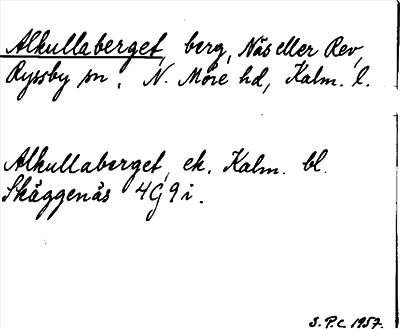 Alkullaberget, berg, Näs eller Rev,
Ryssby sn, N. Möre hd, Kalm. l.
Alkullaberget, ek. Kalm. bl.
Skäggenäs 4G9i.
S.P.C. 1957.